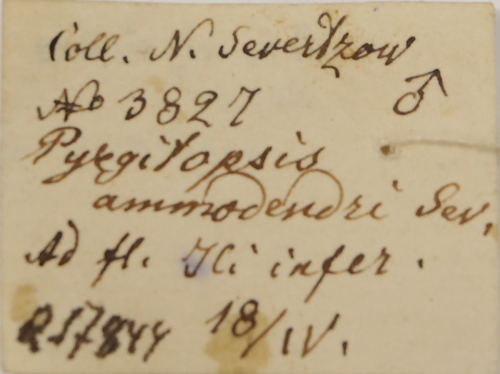 Coll. N. Severtzow
No 3827 ♂
Pyrgitopsis
ammodendri Sev.
Ad fl. Ili infer.
18/IV.